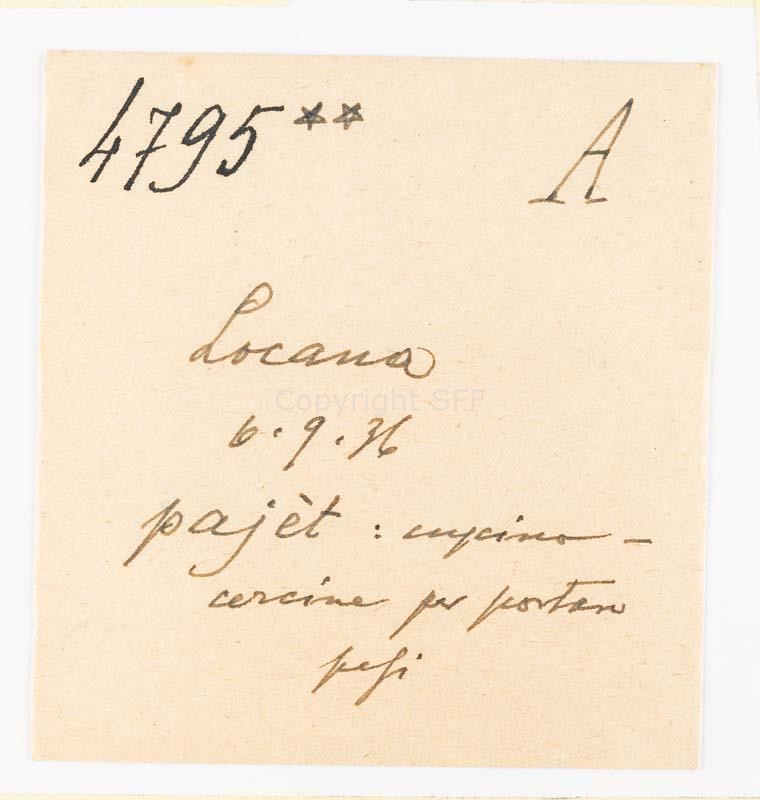 4795** A
Locana
6.9.36
pajèt : cuscino -
cercine per portare
pesi